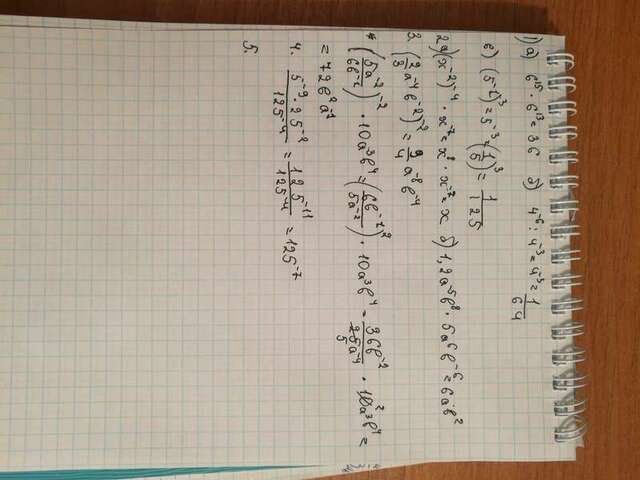 1) а) 6¹⁵ · 6¹³ = 36 б) 4⁻⁶ : 4⁻³ = 4⁻³ = 1/64
в) (5⁻¹)³ = 5⁻³ = (1/5)³ = 1/125
2) а) (x⁻²)⁻⁴ · x⁻⁷ = x⁸ · x⁻⁷ = x б) 1,2a⁻⁵b⁸ · 5a⁶b⁻⁶ = 6ab²
3. (2/3 a⁻⁴b⁻²)⁻² = 9/4 a⁻⁸b⁻⁴
* (5a⁻²/6b⁻¹)⁻² · 10a³b⁴ = (6b⁻¹/5a⁻²)² · 10a³b⁴ = 36b⁻²/25a⁻⁴ · 10a³b⁴ =
= 72b²a⁷
4. 5⁻⁹ · 25⁻²/125⁻⁴ = 125⁻¹¹/125⁻⁴ = 125⁻⁷
5.